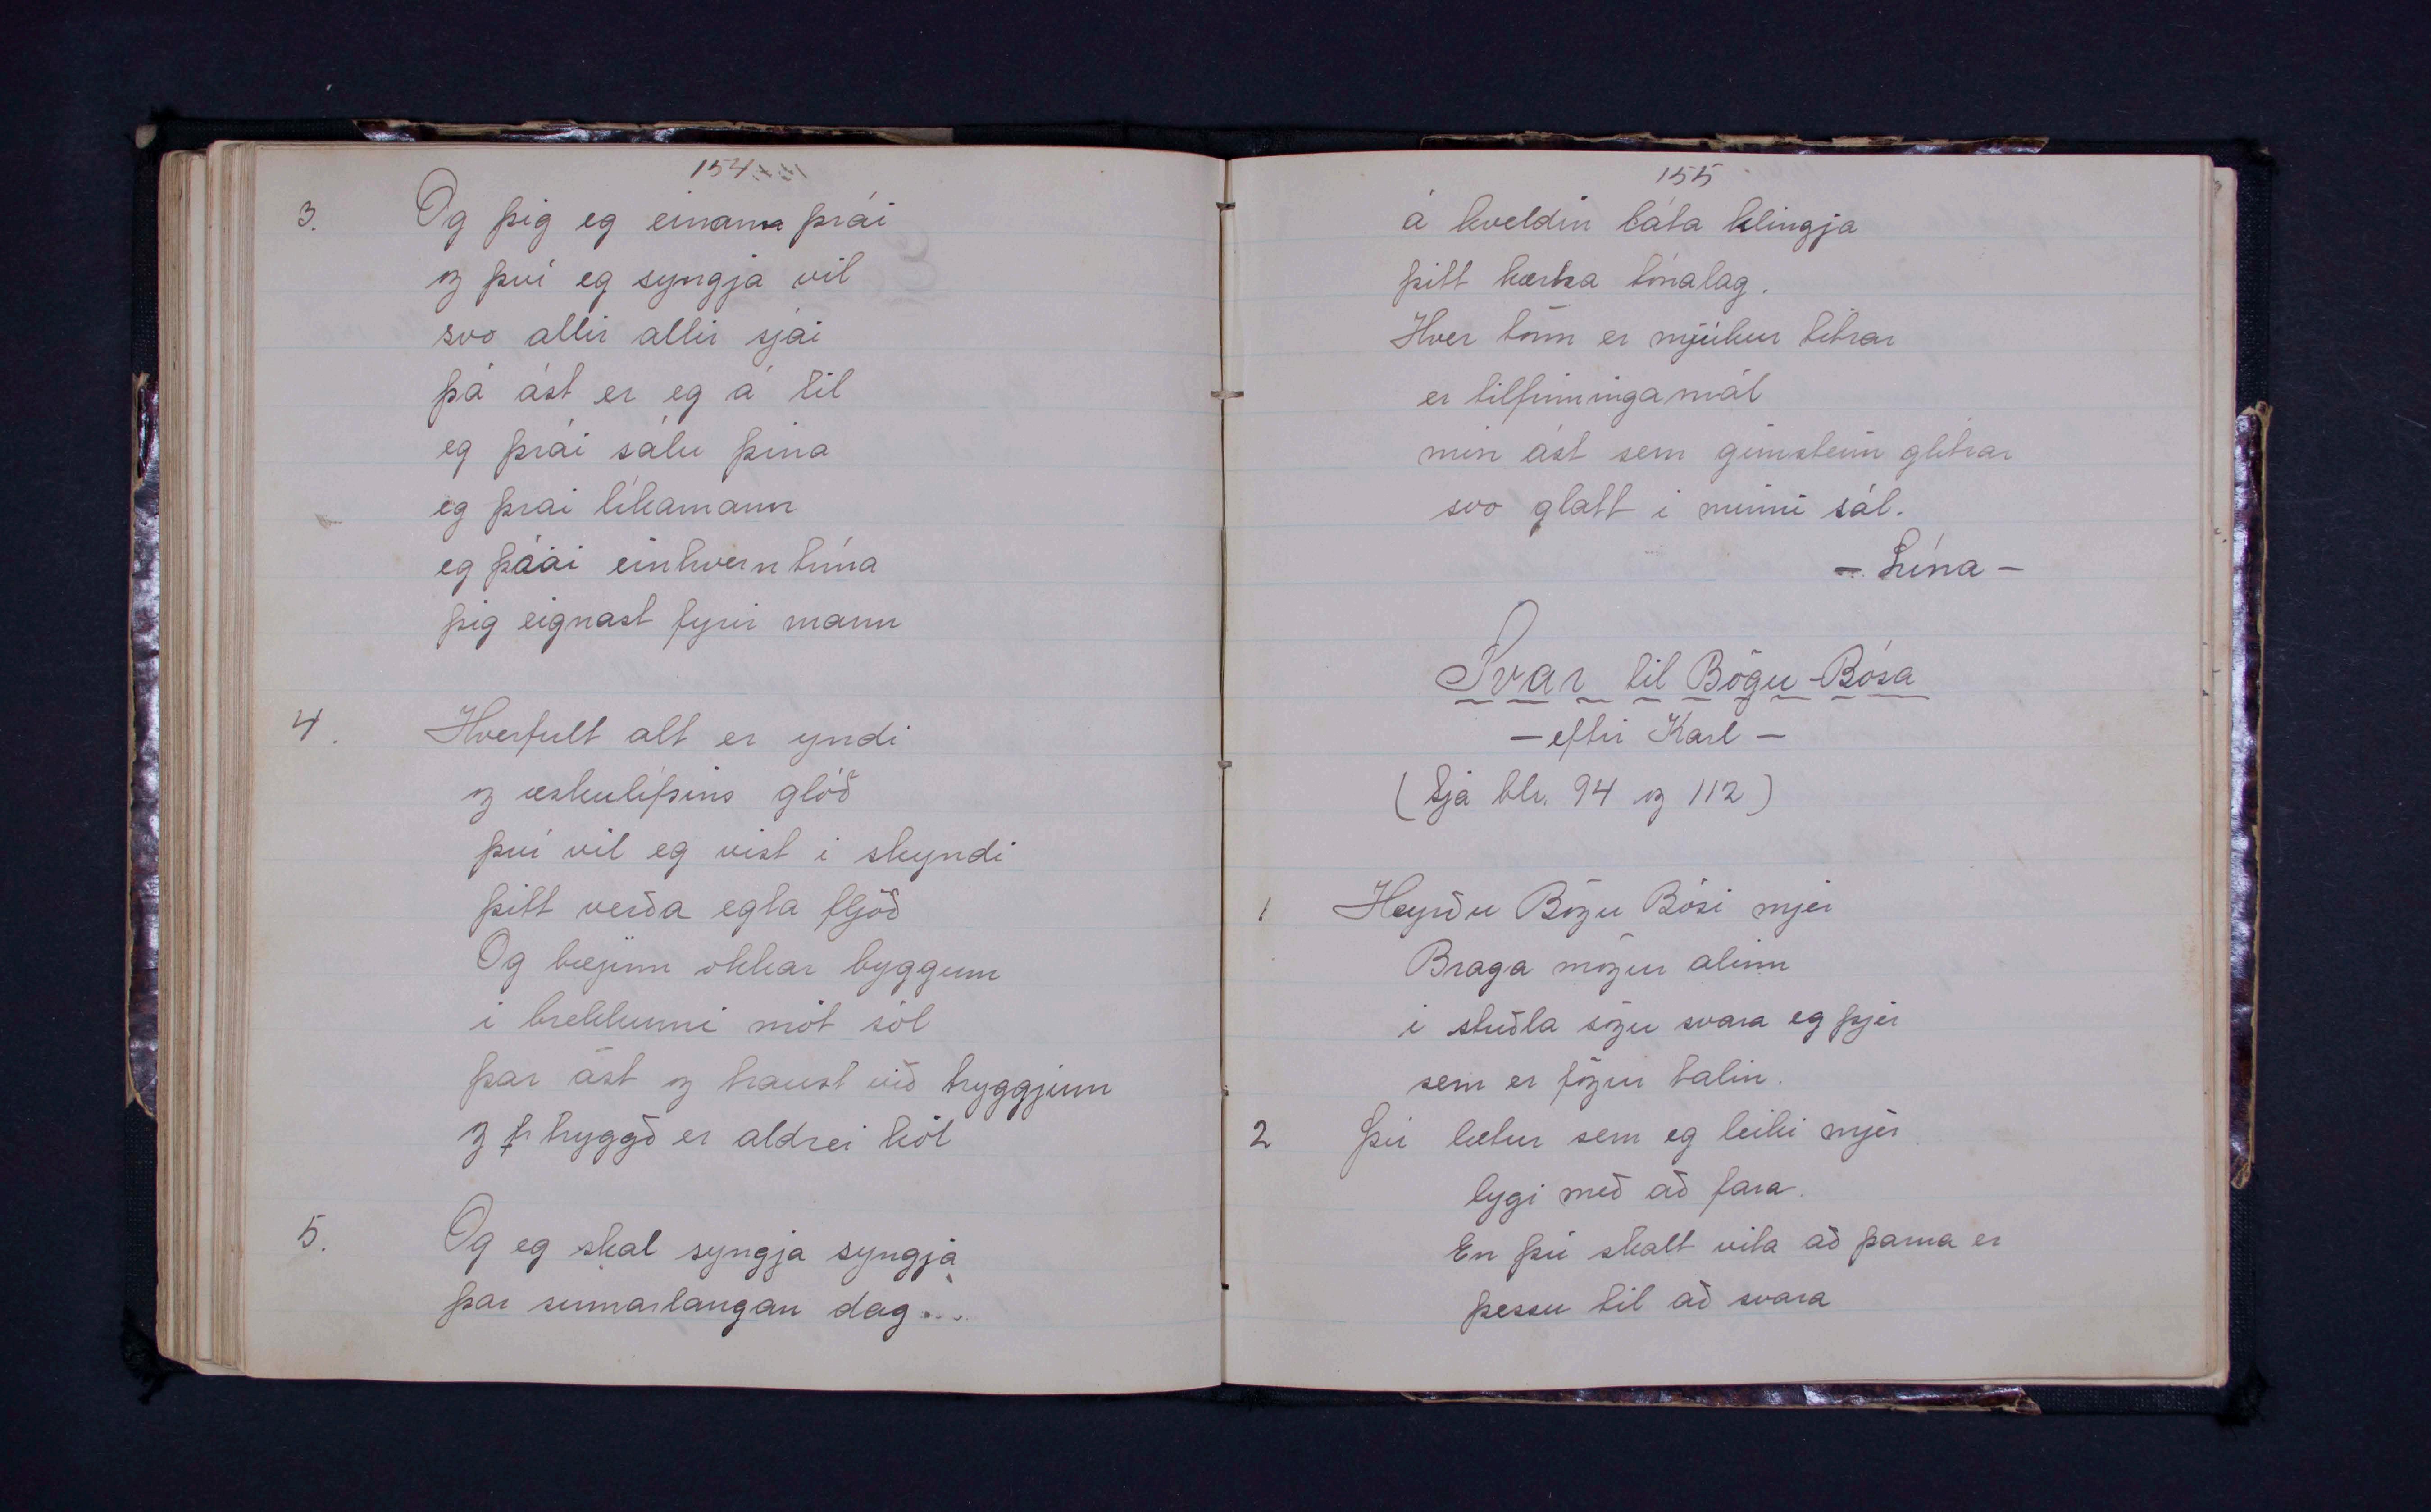 154
3. Og þig eg einann þrái
og því eg syngja vil
svo allir allir sjái
þá ást er eg á til
eg þrái sálu þína
eg þrái líkamann
eg þáái einhvern tíma
þig eignast fyrir mann
4. Hverfult alt er yndi
og æskulífsins glóð
því vil eg vist i skyndi
þitt verða egta fljóð
Og bæjinn okkar byggum
i brekkunni mót sól
þar ást og traust við tryggjum
og tryggð er aldrei kól
5. Og eg skal syngja syngja
þar sumarlangan dag...
155
á kveldin láta klingja
þitt kærka tónalag.
Hver tónn er mjúkur titrar
er tilfinninga mál
mín ást sem gimsteinn glitrar
svo glatt i minni sál.
- Lína -
Svar til Bögu-Bósa
- eftir Karl -
(Sjá bls. 94 og 112)
1 Heyrðu Bögu Bósi mjer
Braga mögur alinn
i stuðla sögu svara eg þjer
sem er fögur talin.
2 Þú lætur sem eg leiki mjer
lygi með að fara.
En þú skalt vita að þarna er
þessu til að svara